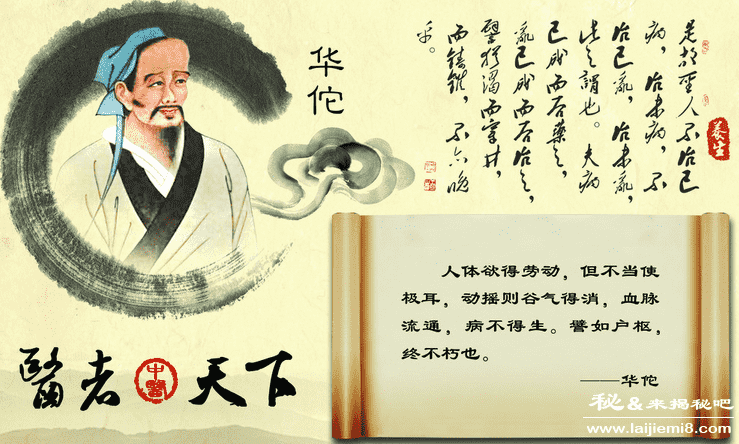 华佗
是故聖人不治已
病，治未病，不
治已亂，治未亂，
此之謂也。夫病
已成而后藥之，
亂已成而后治之，
譬猶渴而穿井，
而鑄錐，不亦晚
乎。
養生
人体欲得劳动，但不当使
极耳，动摇则谷气得消，血脉
流通，病不得生。譬如户枢，
终不朽也。
——华佗
醫者中醫天下
秘&来揭秘吧
www.laijiemi8.com